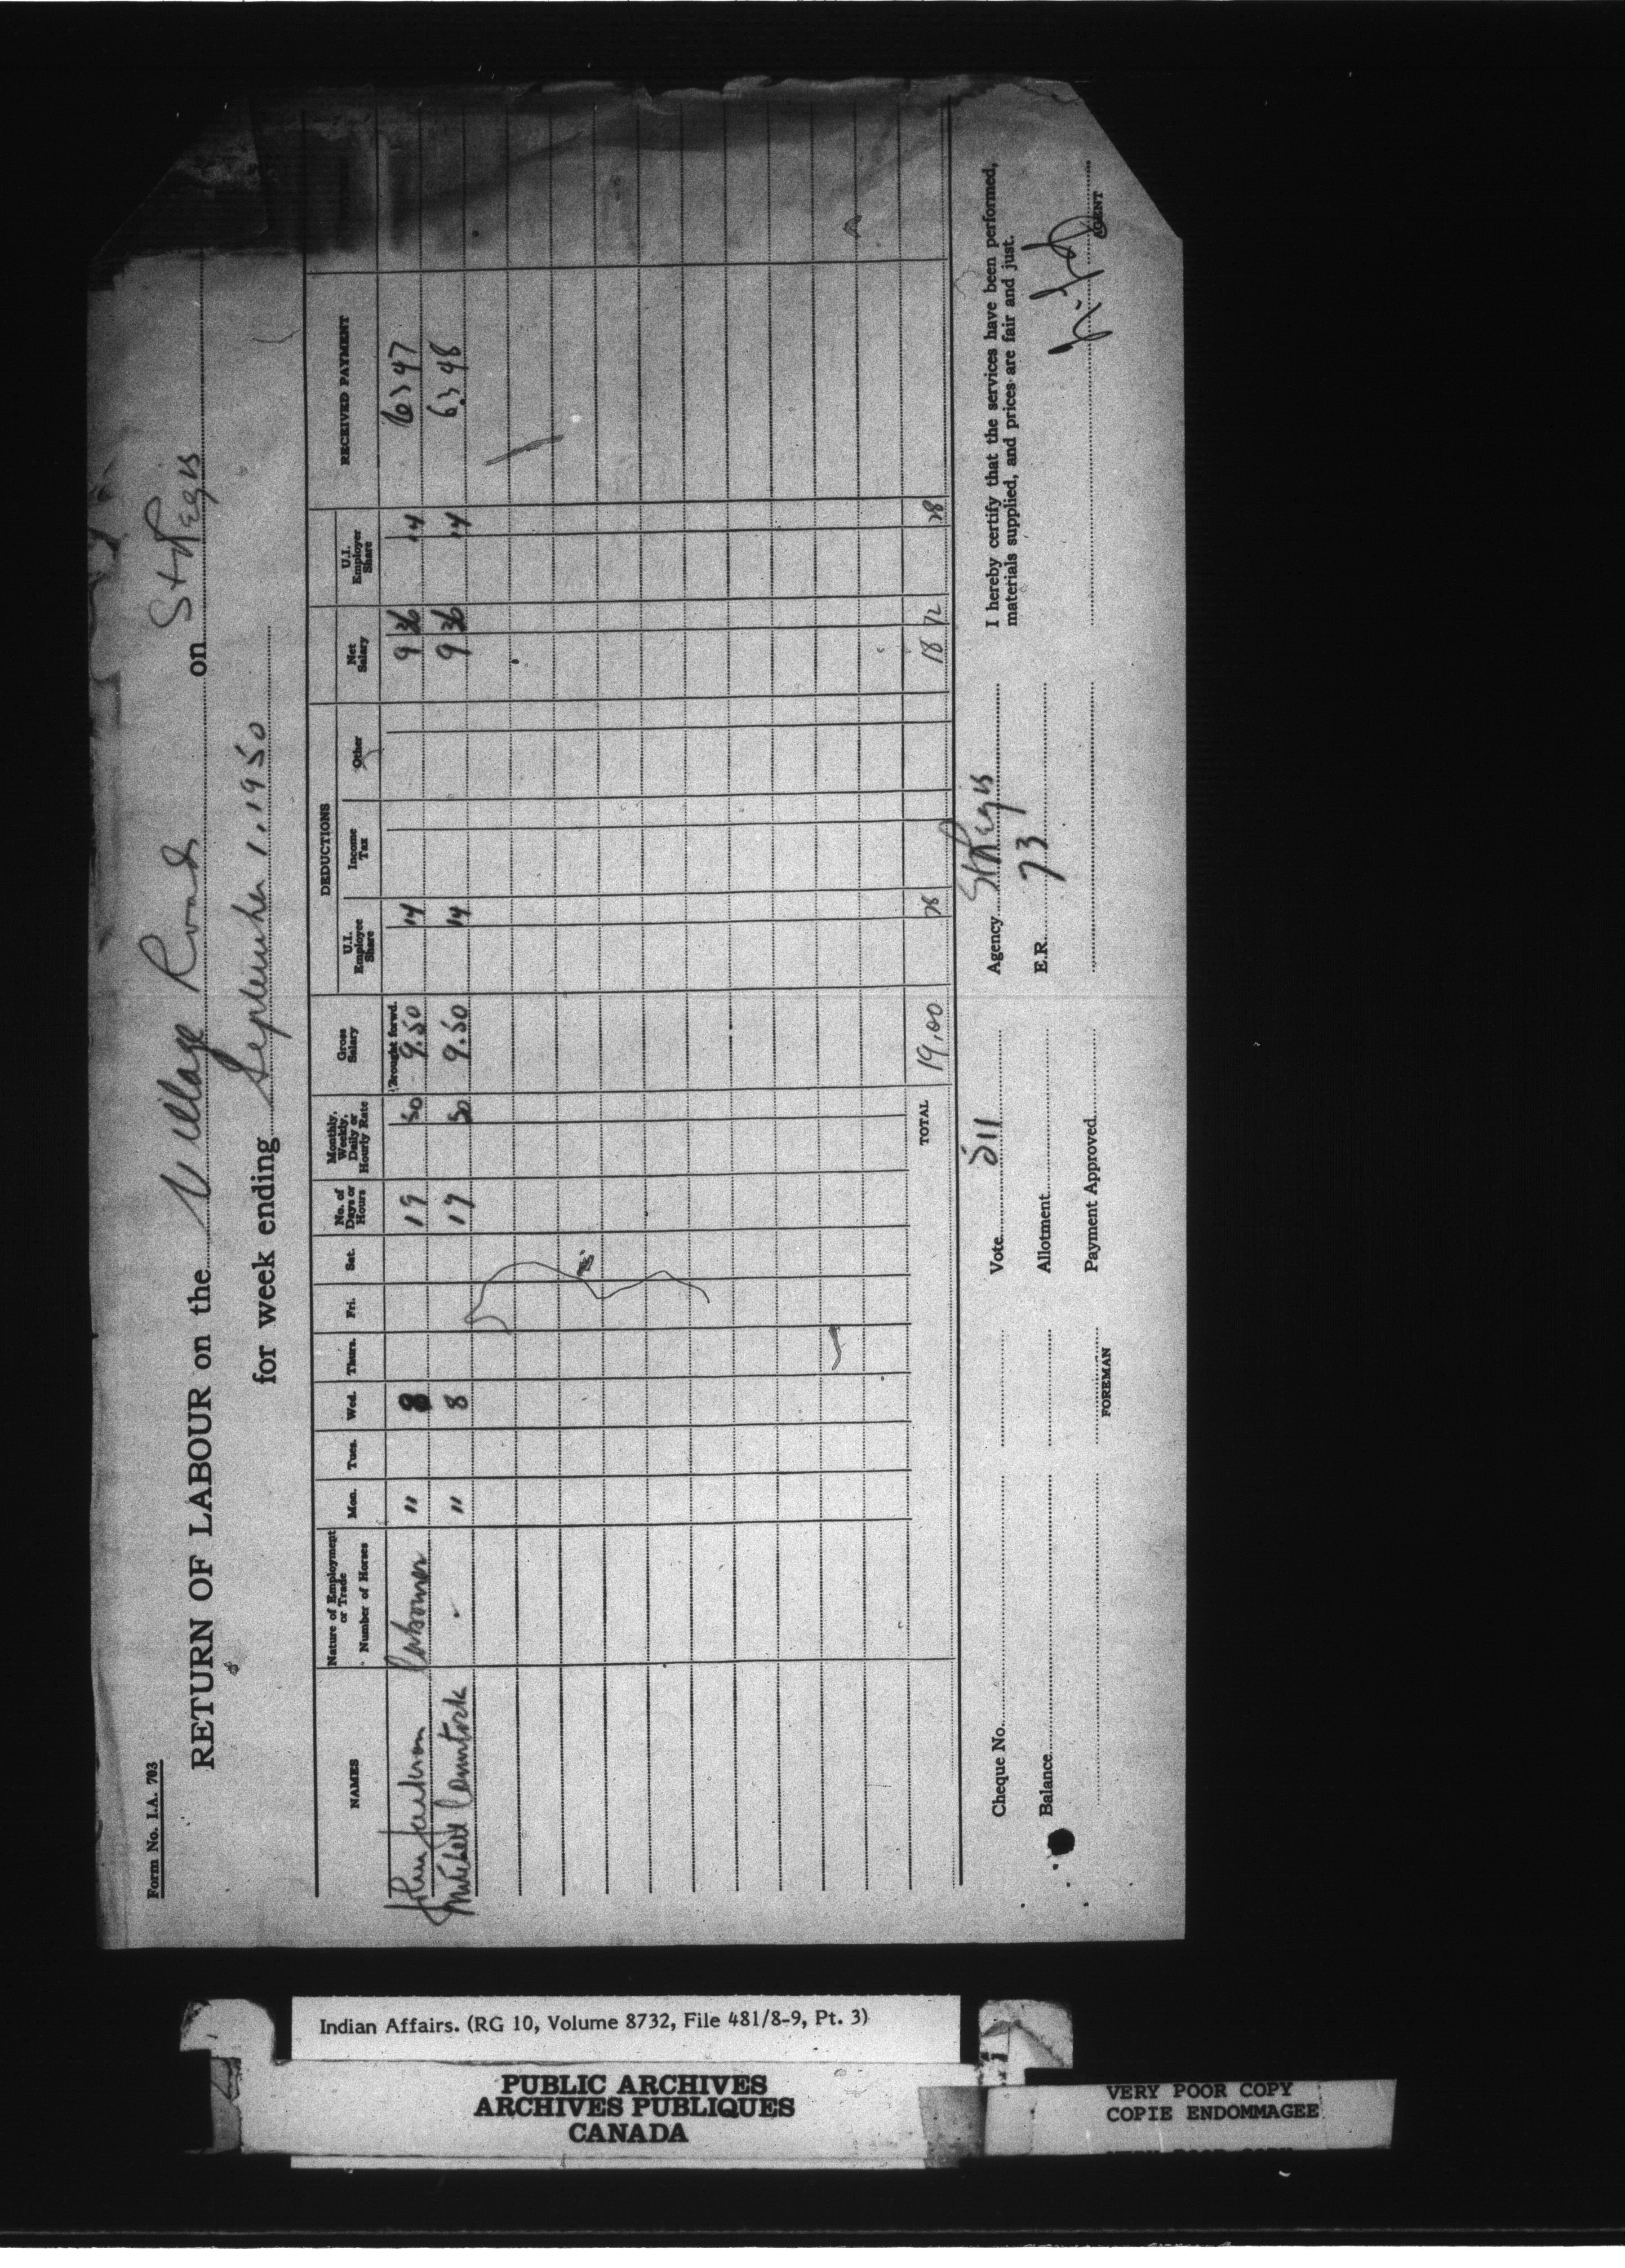 Form No. I.A. 703
RETURN OF LABOUR on the Village Roads on St Regis
for week ending September 1, 1950
NAMES
Nature of Employment or Trade
Number of Horses
Mon. Tues. Wed. Thurs. Fri. Sat.
No. of Days or Hours
Monthly, Weekly, Daily or Hourly Rate
Gross Salary
DEDUCTIONS
U.I. Employee Share
Income Tax
Other
Net Salary
U.I. Employer Share
RECEIVED PAYMENT
Brought forwd.
John Jackson Labourer " 8 19 50 9.50 14 9 36 14 6347
Mitchell " 8 19 50 9.50 14 9 36 14 6348
TOTAL 19.00 28 18 72 28
Cheque No. Vote 211 Agency St Regis
I hereby certify that the services have been performed,
materials supplied, and prices are fair and just.
Balance Allotment E.R. 73
Payment Approved
FOREMAN
AGENT
Indian Affairs. (RG 10, Volume 8732, File 481/8-9, Pt. 3)
PUBLIC ARCHIVES
ARCHIVES PUBLIQUES
CANADA
VERY POOR COPY
COPIE ENDOMMAGEE